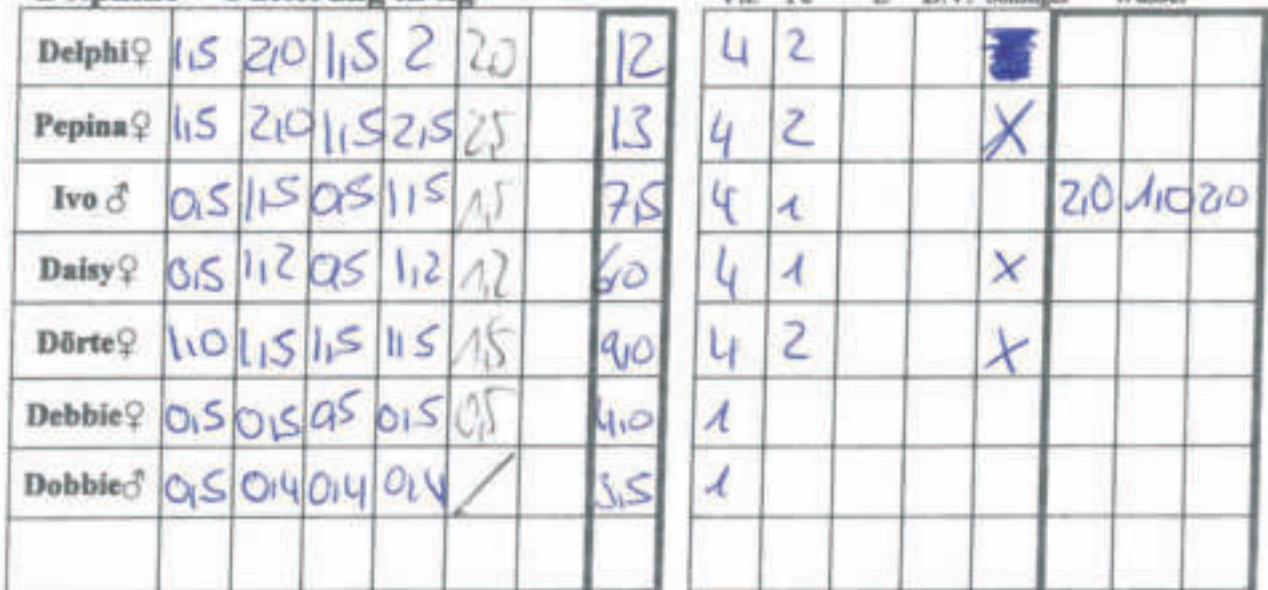 Delphi♀ 1,5 2,0 1,5 2 2,0 12 4 2
Pepina♀ 1,5 2,0 1,5 2,5 2,5 13 4 2 X
Ivo ♂ 0,5 1,5 0,5 1,5 1,5 7,5 4 1 2,0 1,0 2,0
Daisy♀ 0,5 1,2 0,5 1,2 1,2 6,0 4 1 X
Dörte♀ 1,0 1,5 1,5 1,5 1,5 9,0 4 2 X
Debbie♀ 0,5 0,5 0,5 0,5 0,5 4,0 1
Dobbie♂ 0,5 0,4 0,4 0,4 / 3,5 1